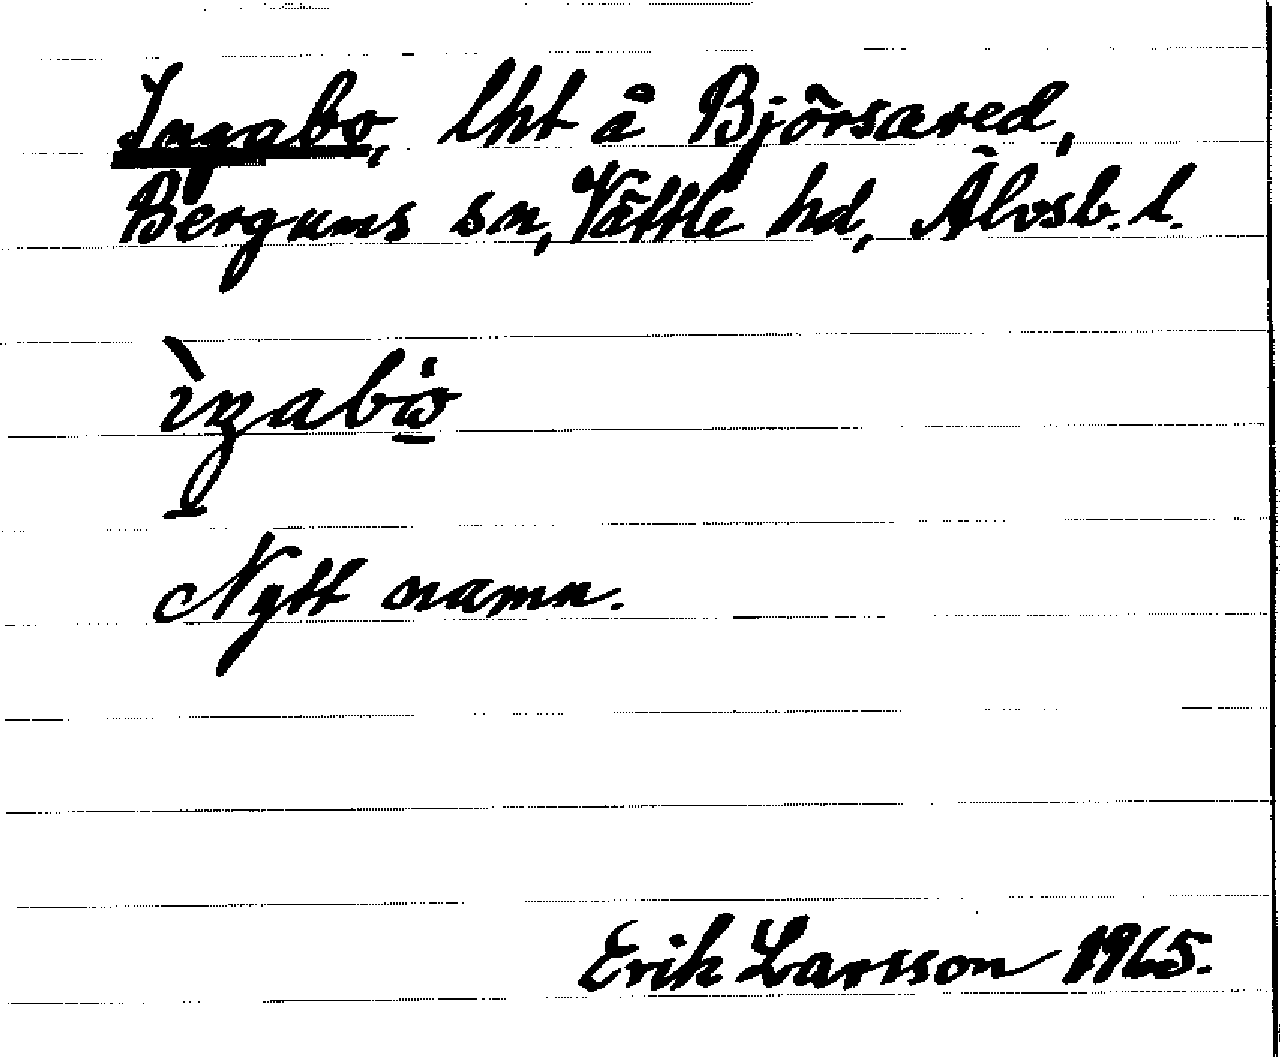 Ingabo, lht å Björsared,
Bergums sn, Vättle hd, Älvsb. l.
Nytt namn.
Erik Larsson 1965.